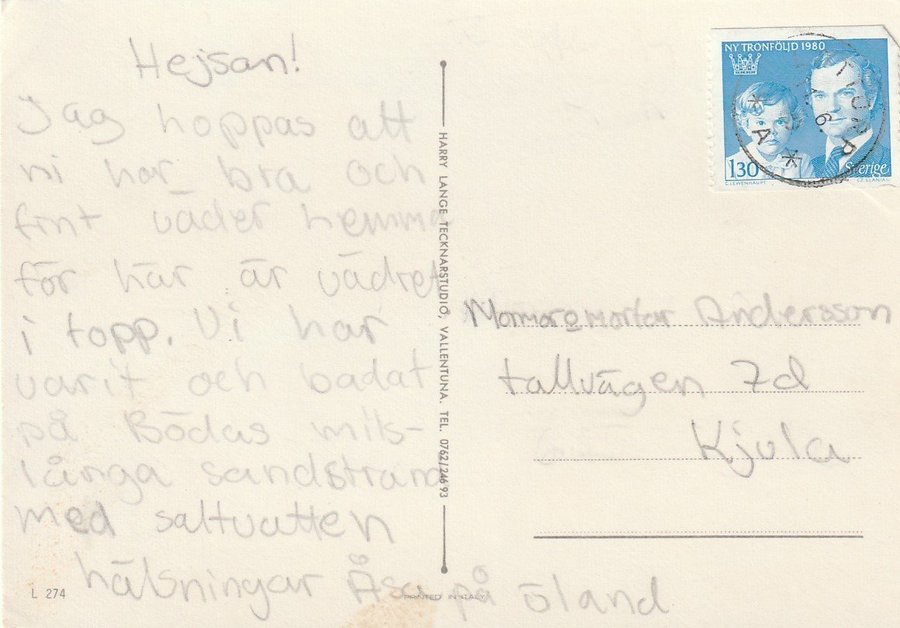 Hejsan!
Jag hoppas att
ni har bra och
fint väder hemma
för här är vädret
i topp. Vi har
varit och badat
på Bödas mils-
långa sandstrand
med saltvatten
hälsningar Åsa på öland
L 274
PRINTED IN ITALY
HARRY LANGE TECKNARSTUDIO, VALLENTUNA. TEL. 0762/246 93
NY TRONFÖLJD 1980
130
Sverige
Mormor o morfar Andersson
tallvägen 7d
Kjula